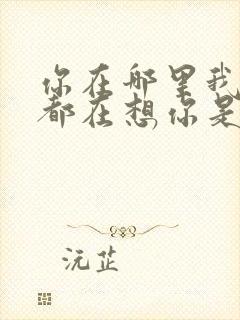 你在哪里我
都在想你是
沅芷